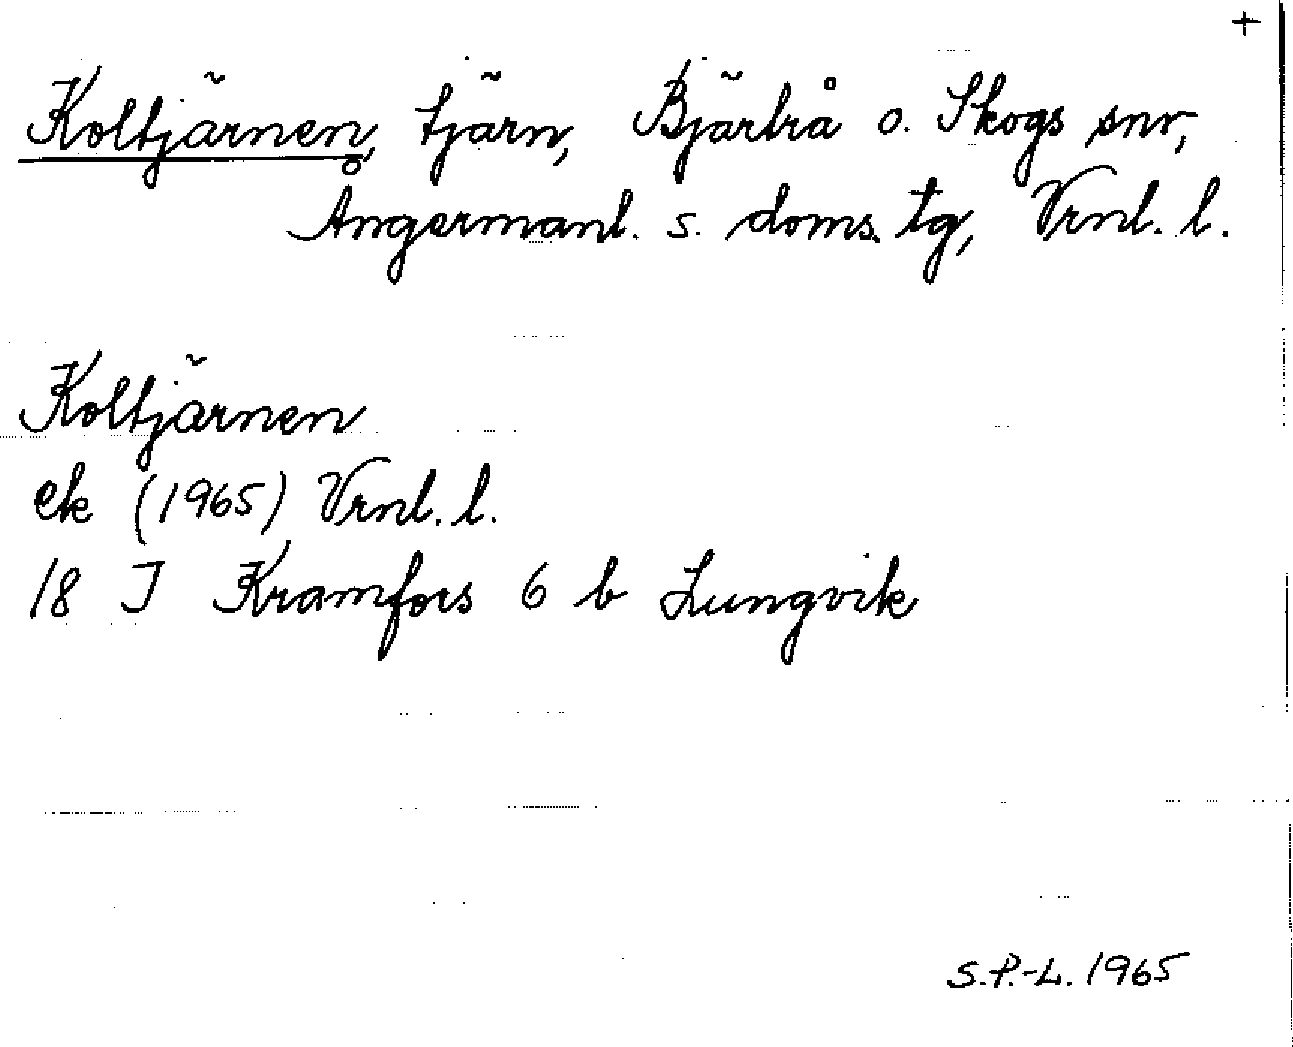 +
Koltjärnen, tjärn, Bjärtrå o. Skogs snr,
Ångermanl. s. doms. tg, Vrnl. l.
Koltjärnen
ek (1965) Vrnl. l.
18 I Kramfors 6 b Lungvik
S.P.-L. 1965